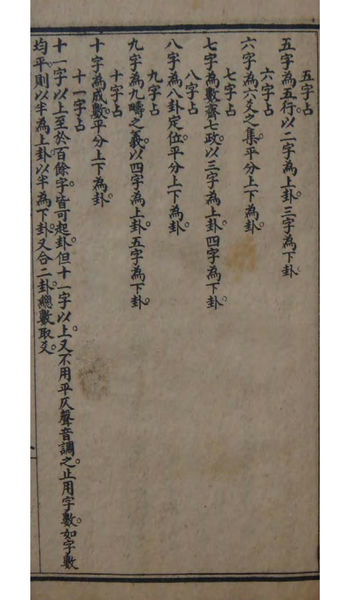 五字占
五字為五行。以二字為上卦。三字為下卦
六字占
六字為六爻之集。平分上下為卦。
七字占
七字為數齊七政。以三字為上卦。四字為下卦
八字占
八字為八卦定位。平分上下為卦。
九字占
九字為九疇之義。以四字為上卦。五字為下卦
十字占
十字為成數。平分上下為卦。
十一字占
十一字以上至於百餘字。皆可起卦。但十一字以上。又不用平仄聲音調之。止用字數。如字數
均平。則以半為上卦。以半為下卦。又合二卦總數取爻。